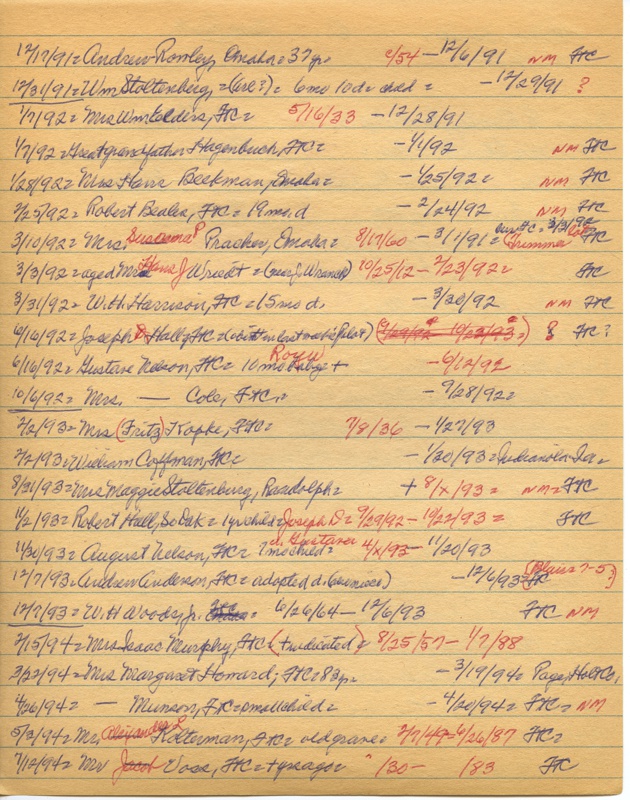 12/17/91 = Andrew Romley, Omaha = 37 yr. 2/54 — 12/6/91 NM FtC
12/31/91 = Wm Stoltenberg, = (use?) = 6 mo 10 d = child = — 12/29/91 ?
1/7/92 = Mrs Wm Eelders, FtC = 5/16/33 — 12/28/91
1/7/92 = Great grandfather Hagenbuch, FtC = — 1/1/92 NM FtC
1/28/92 = Mrs Hans Beekman, Omaha = — 1/25/92 = NM FtC
2/25/92 = Robert Beales, FtC = 19 mo. d — 2/24/92 NM FtC
3/10/92 = Mrs. Susanna P Pracher, Omaha = 8/17/60 — 3/1/91 = 3/3/92 (Drummer lot FtC
3/3/92 = aged Mrs Hans J Wreedt = 10/25/12 — 2/23/92 = FtC
3/31/92 = W. H. Harrison, FtC = 15 mo d. — 3/30/92 NM FtC
6/16/92 = Joseph D Hall, FtC ? FtC?
6/16/92 = Gustave Nelson, FtC = 10 mo baby + Roy W — 6/12/92
10/6/92 = Mrs. — Cole, FtC, = — 9/28/92 =
2/2/93 = Mrs (Fritz) Kopke, FtC = 7/8/36 — 1/27/93
2/2/93 = William Coffman, FtC = — 1/20/93 = Indianola Ia =
8/21/93 = Mrs Maggie Stoltenburg, Randolph = + 8/x/93 = NM = FtC
11/2/93 = Robert Hall, So Dak = 1 yr child = Joseph D = 9/29/92 — 10/22/93 = FtC
11/30/93 = August Nelson, FtC = 7 mo child = s. Gustave 4/x/93 — 11/20/93
12/7/93 = Andrew Anderson, FtC = adopted d. — 12/6/93 FtC (Blair 7-5?)
12/7/93 = W. H Woods, Jr. = 6/26/64 — 12/6/93 FtC NM
2/15/94 = Mrs Isaac Murphy, FtC (+ indicated) = 8/25/57 — 1/7/88
3/22/94 = Mrs Margaret Homard, FtC = 83 yr. — 3/19/94 = Page, Holt Co,
4/26/94 = — Munson, FtC = small child = — 4/20/94 = FtC = NM
5/3/94 = Mr. Alexander L Kolterman, FtC = old grave = 2/7/47 = 4/26/87 FtC
7/12/94 = Mr Jacob Voss, FtC = + yrs ago = " /30 — /83 FtC